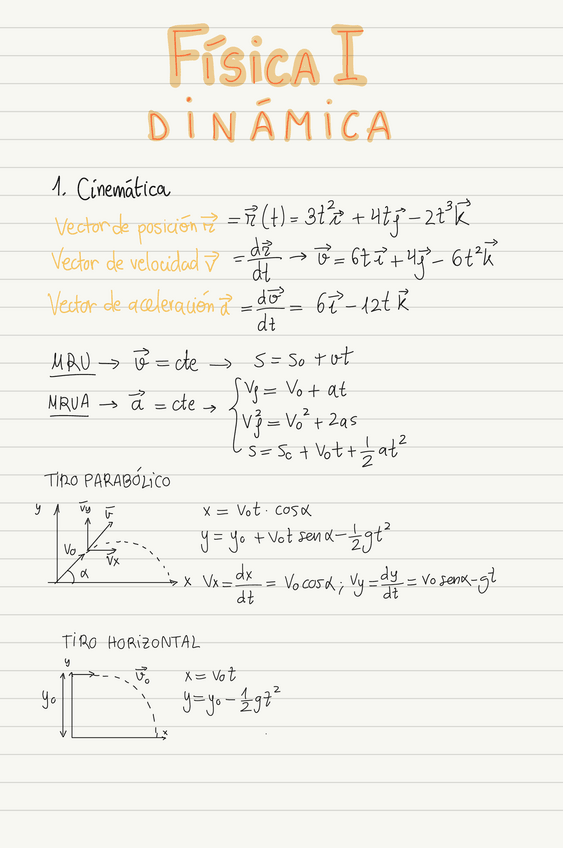 Física I
DINÁMICA
1. Cinemática
Vector de posición r⃗ = r⃗(t) = 3t²i⃗ + 4tj⃗ − 2t³k⃗
Vector de velocidad v⃗ = dr⃗/dt → v⃗ = 6ti⃗ + 4j⃗ − 6t²k⃗
Vector de aceleración a⃗ = dv⃗/dt = 6i⃗ − 12tk⃗
MRU → v⃗ = cte → s = s₀ + vt
MRUA → a⃗ = cte →
Vf = V₀ + at
Vf² = V₀² + 2as
s = s₀ + V₀t + 1/2 at²
TIRO PARABÓLICO
y
V⃗y
v⃗
V₀
V⃗x
α
x
x = V₀t · cosα
y = y₀ + V₀t senα − 1/2 gt²
Vx = dx/dt = V₀cosα; Vy = dy/dt = V₀ senα − gt
TIRO HORIZONTAL
y
v⃗₀
y₀
x
x = V₀t
y = y₀ − 1/2 gt²